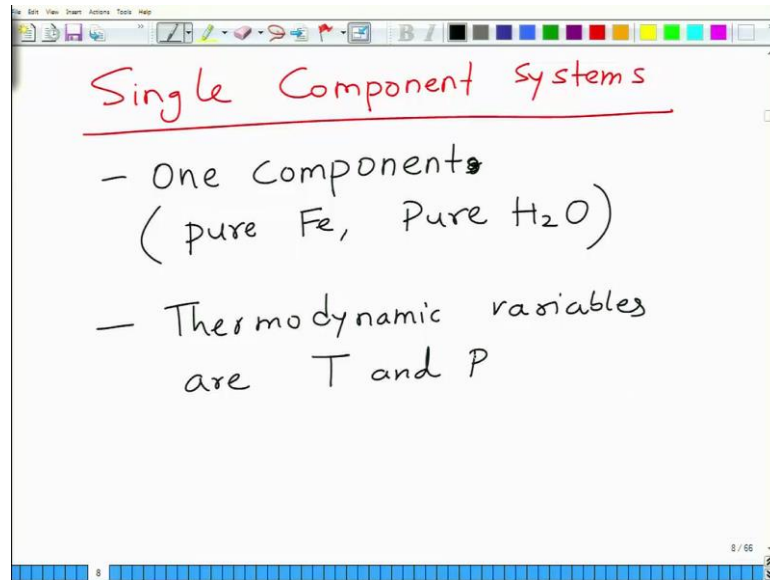 File Edit View Insert Actions Tools Help
B I
Single Component Systems
- One component
(pure Fe, Pure H₂O)
- Thermodynamic variables
are T and P
8/66
8